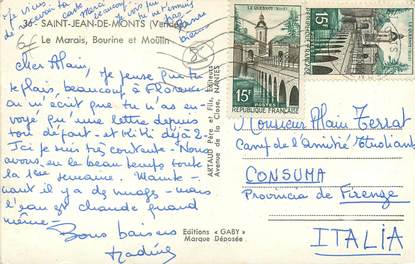 36 SAINT-JEAN-DE-MONTS (Vendée)
Le Marais, Bourine et Moulin
Cher Alain,
Je pense que tu te
plais beaucoup à Florence
on m'écrit que tu n'as en-
voyé qu'une lettre depuis
ton départ - et Kiki déjà 2.
Ici je suis très contente. Nous
avons eu le beau temps toute
la 1ère semaine. Mainte-
nant il y a des nuages - mais
l'eau est chaude quand
même -
Bons baisers
Nadine
ARTAUD Père et Fils, Editeurs
Avenue de la Close, NANTES
Editions « GABY »
Marque Déposée
LE QUESNOY
15F
RÉPUBLIQUE FRANÇAISE
15F
Monsieur Alain Terrat
Camp de l'amitié Etudiants
CONSUMA
Provincia de Firenze
ITALIA